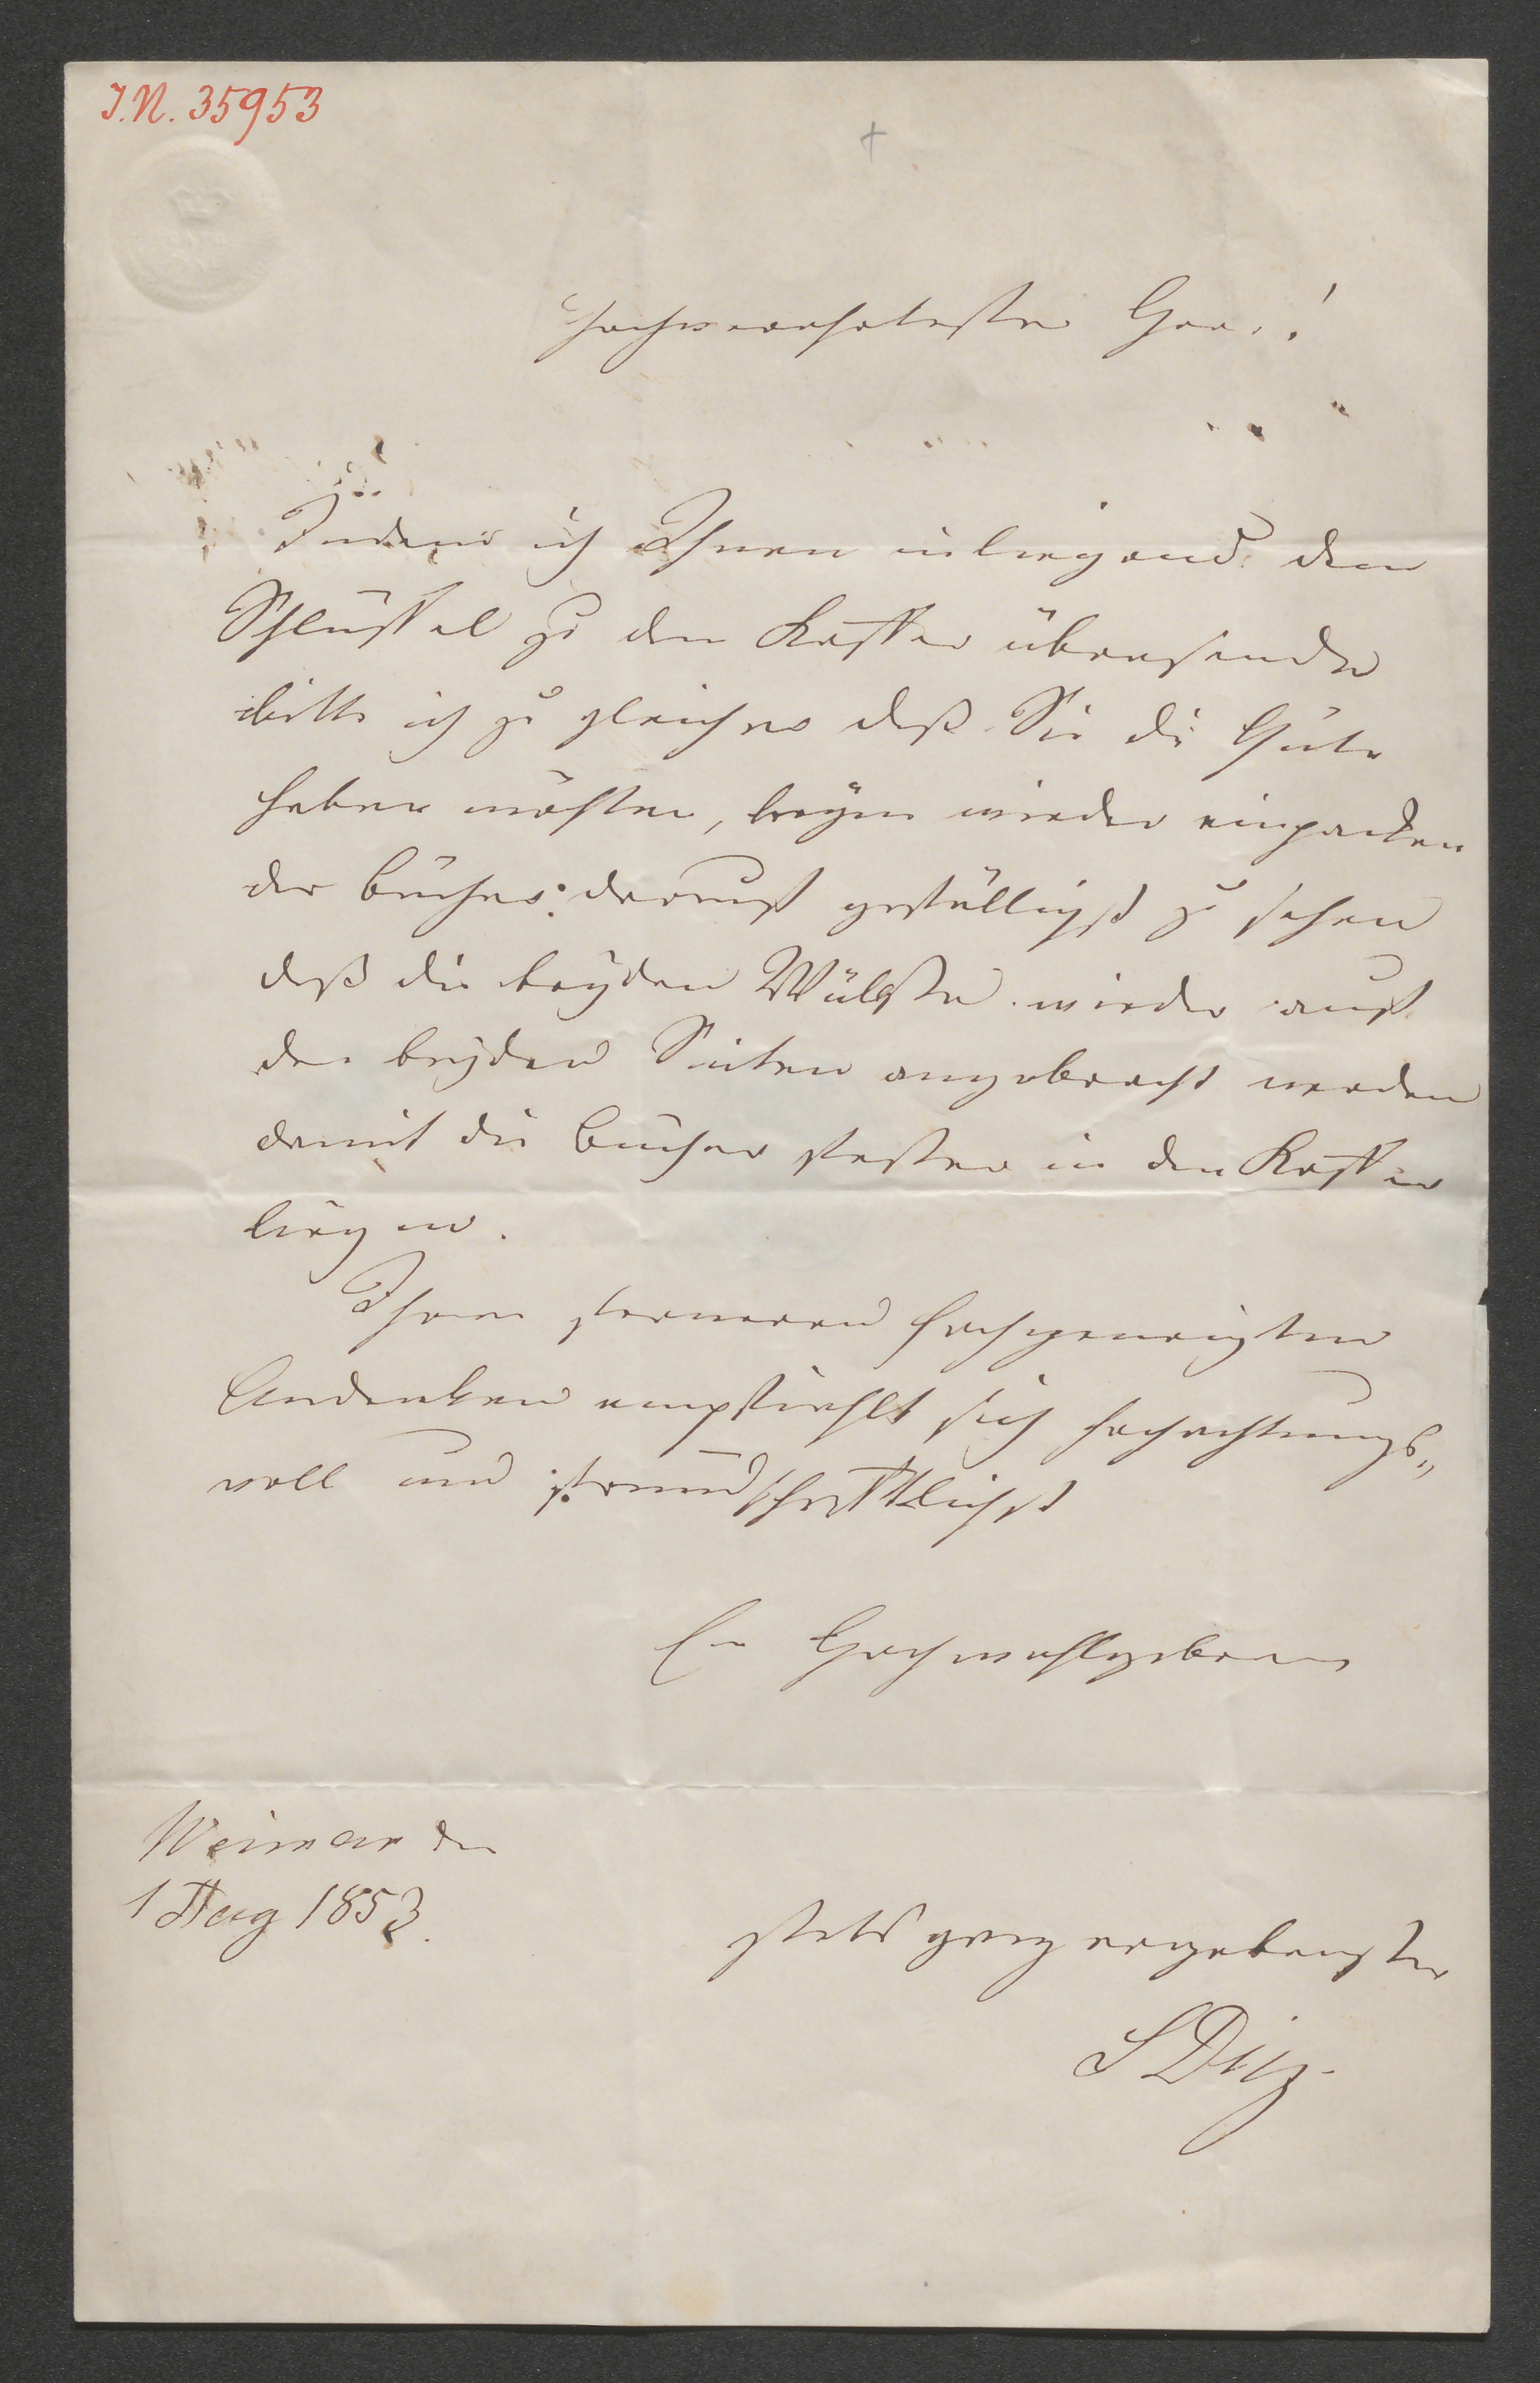 I.N. 35953
Hochverehrtester Herr!
Indem ich Ihnen inliegend den
Schlüssel zu den Koffer übersende
bitte ich zu gleicher daß Sie die Güte
haben möchten, beym wieder einpacken
der Bücher darauf gefälligst zu sehen
daß die beyden Wülste wieder auf
den beyden Seiten angebracht werden
damit die Bücher fester in den Koffer
liegen.
Ihrem ferneren hochgeneigten
Andenken empfiehlt sich hochachtungs„
voll und freundschaftlichst
Ew Hochwohlgeboren
Weimar den
1 Aug 1853.
stets ganz ergebenster